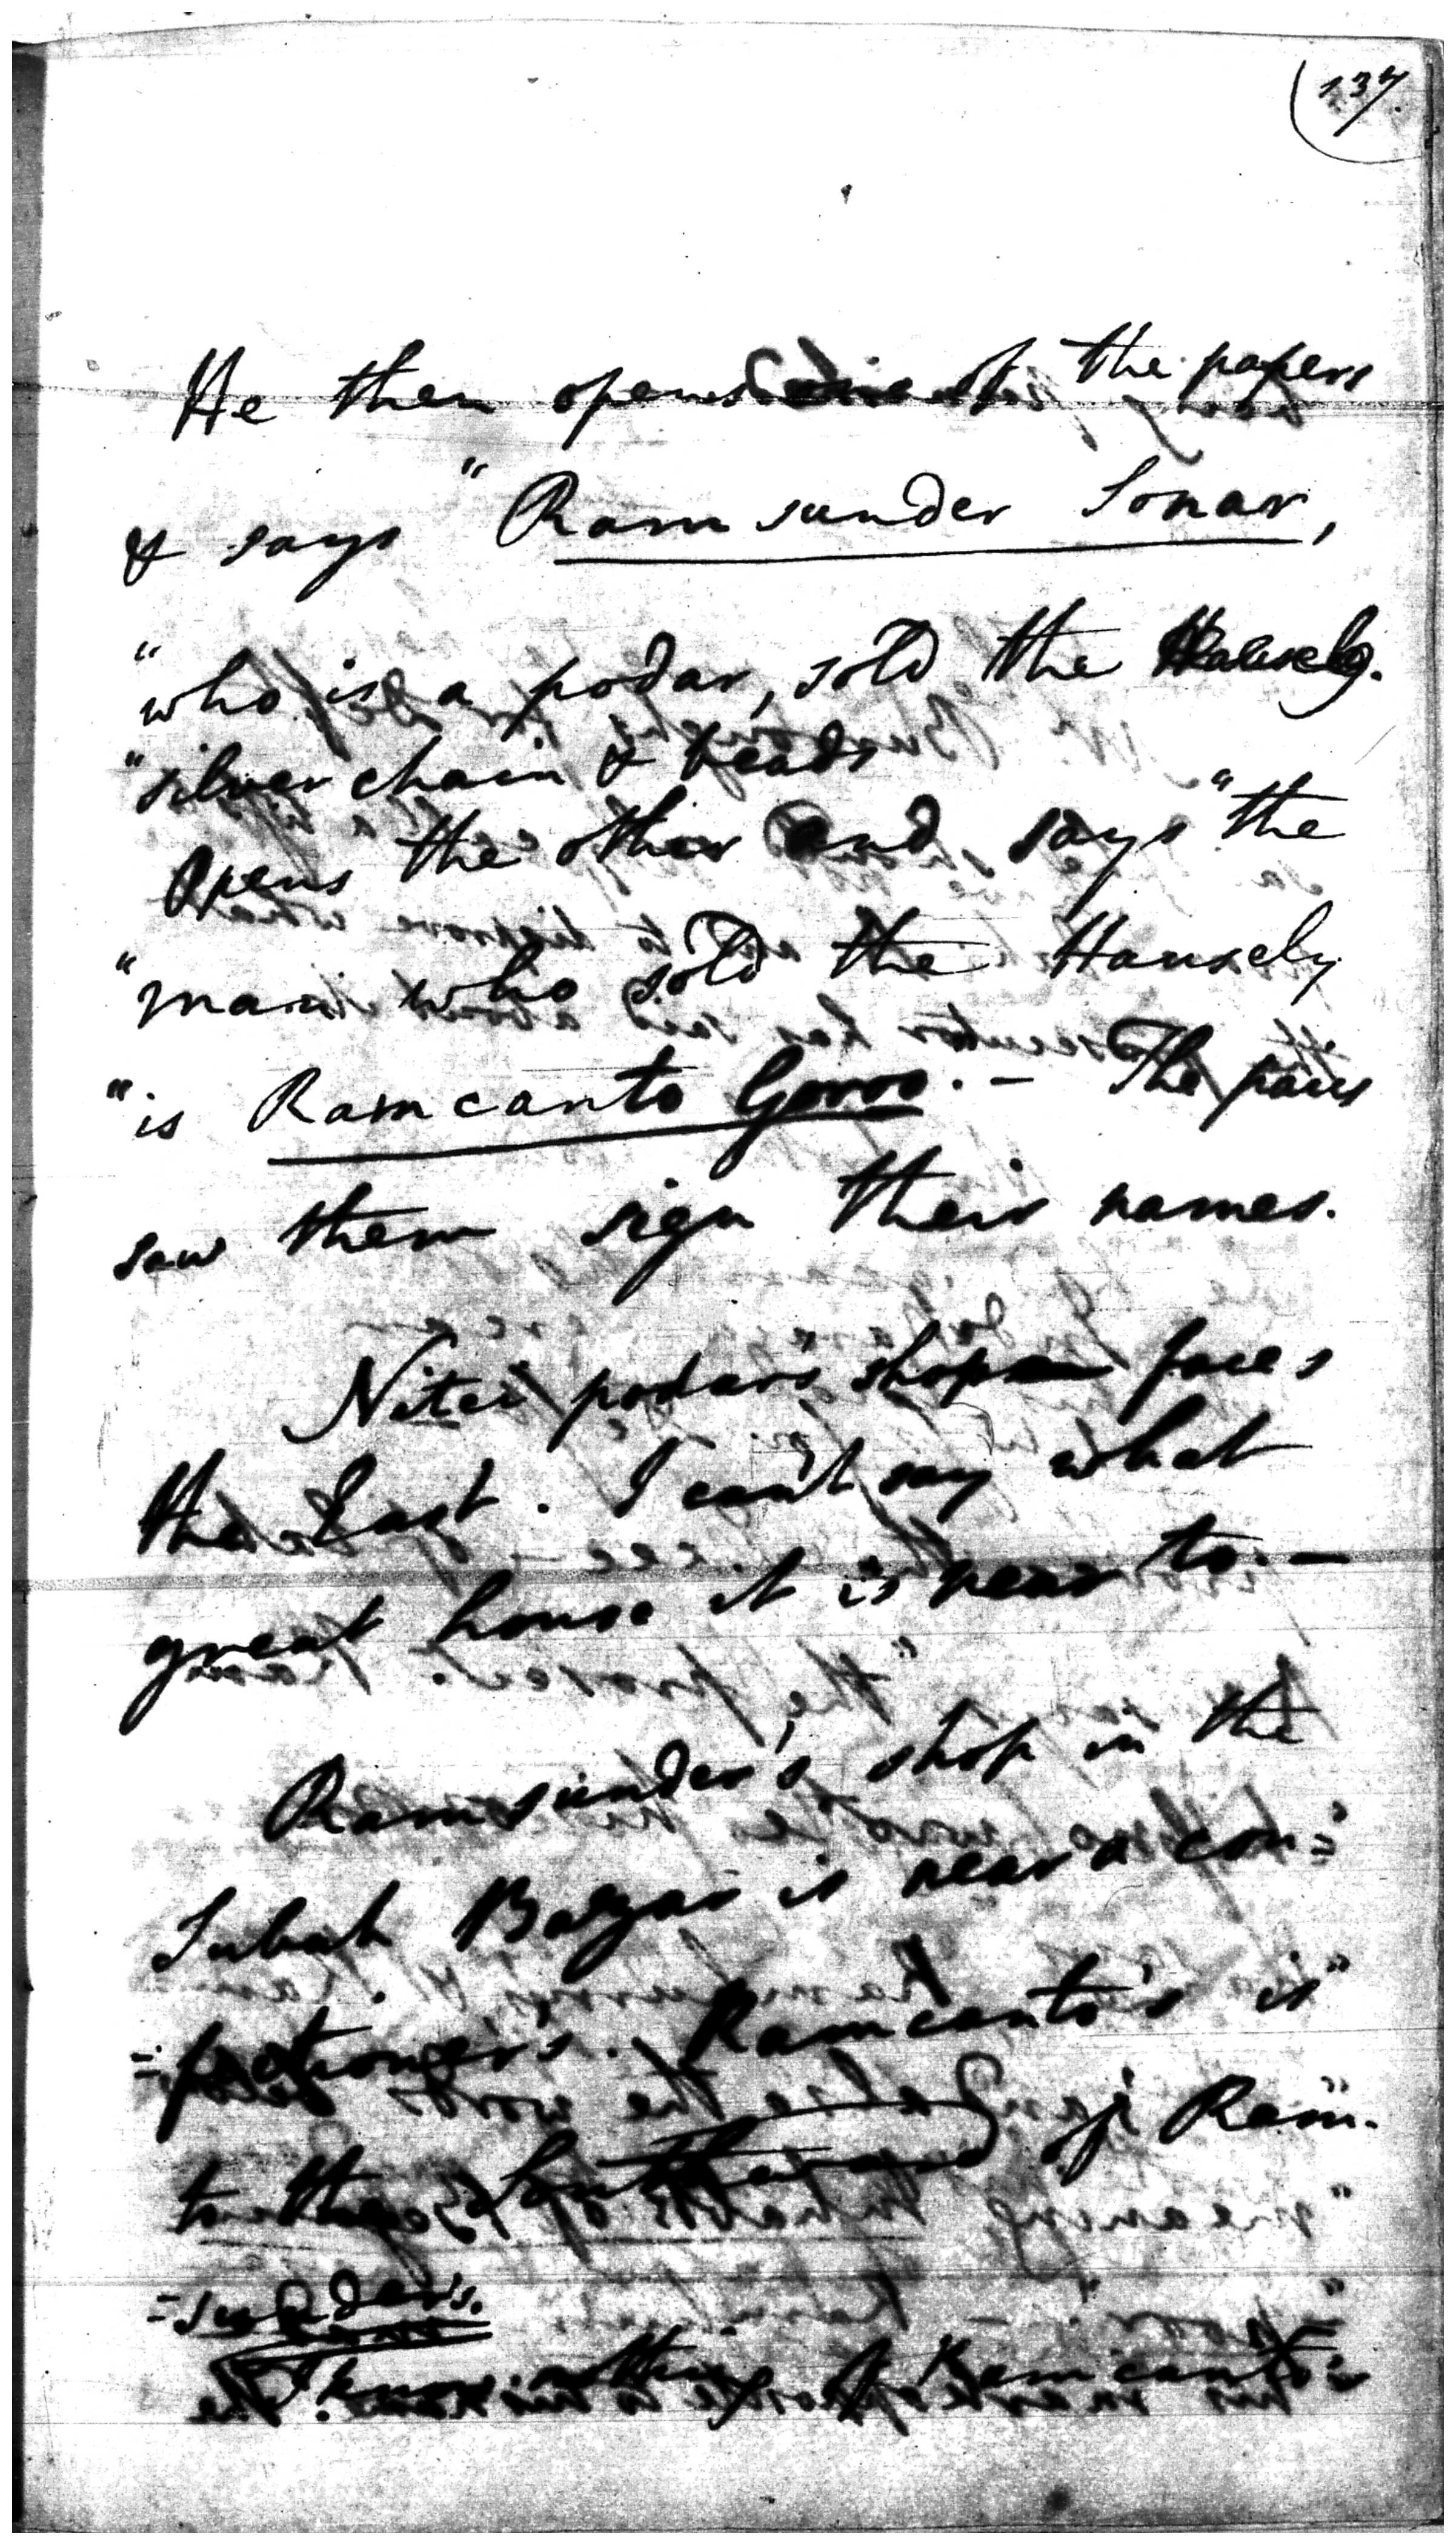 (137.
He then opens one of the papers
& says "Ramsunder Sonar,
"who is a podar, sold the
"silver chain & beads
Opens the other and says "the
"man who sold the Hansely
"is Ramcanto Goroo. — The
saw them sign their names.
Nitei podar's shop faces
the East. I can't say what
great house it is near to. —
Ramsunder's shop in the
Subah Bazar is near a con=
=fectioner's. Ramcanto's is
to the Southward of Ram=
=sunder's.
I know nothing of Ramcanto's